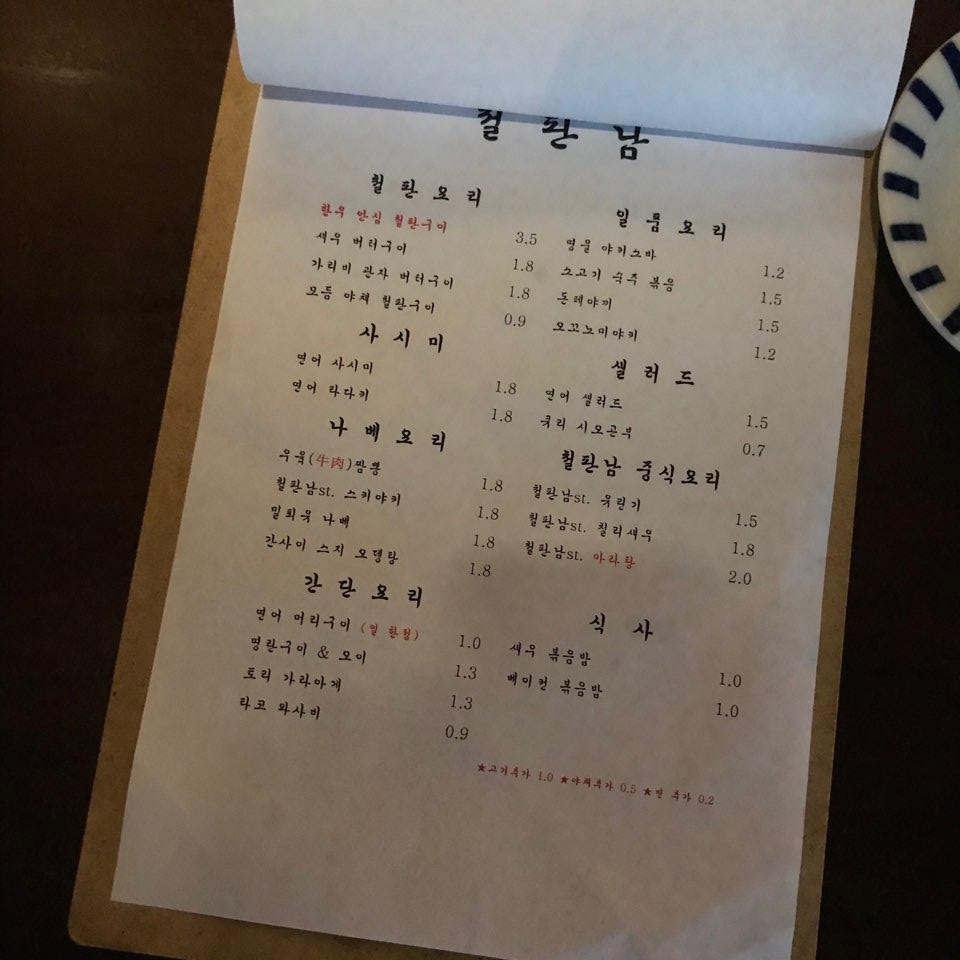 철판남
철판요리
한우 안심 철판구이 3.5
새우 버터구이 1.8
가리비 관자 버터구이 1.8
모듬 야채 철판구이 0.9
사시미
연어 사시미 1.8
연어 타다키 1.8
나베요리
우육(牛肉)짬뽕 1.8
철판남st. 스키야키 1.8
밀푀유 나베 1.8
간사이 스지 오뎅탕 1.8
간단요리
연어 머리구이 (일 한정) 1.0
명란구이 & 오이 1.3
토리 가라아게 1.3
타코 와사비 0.9
일품요리
명물 야키소바 1.2
소고기 숙주 볶음 1.5
돈테야끼 1.5
오꼬노미야키 1.2
샐러드
연어 샐러드 1.5
큐리 시오곤부 0.7
철판남 중식요리
철판남st. 유린기 1.5
철판남st. 칠리새우 1.8
철판남st. 마라탕 2.0
식사
새우 볶음밥 1.0
베이컨 볶음밥 1.0
★고기추가 1.0 ★야채추가 0.5 ★면 추가 0.2